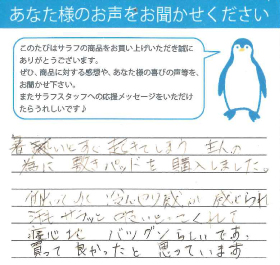 あなた様のお声をお聞かせください
このたびはサラフの商品をお買い上げいただき誠に
ありがとうございます。
ぜひ、商品に対する感想や、あなた様の喜びの声等を、
お聞かせ下さい。
またサラフスタッフへの応援メッセージをいただけ
たらうれしいです♪
暑いとすぐ起きてしまう 主人の
為に 敷きパッドを購入しました。
冷んやり感が 感じられ
汗も サラッと 吸いとってくれて
寝心地 バツグンらしいです。
買って 良かったと 思っています